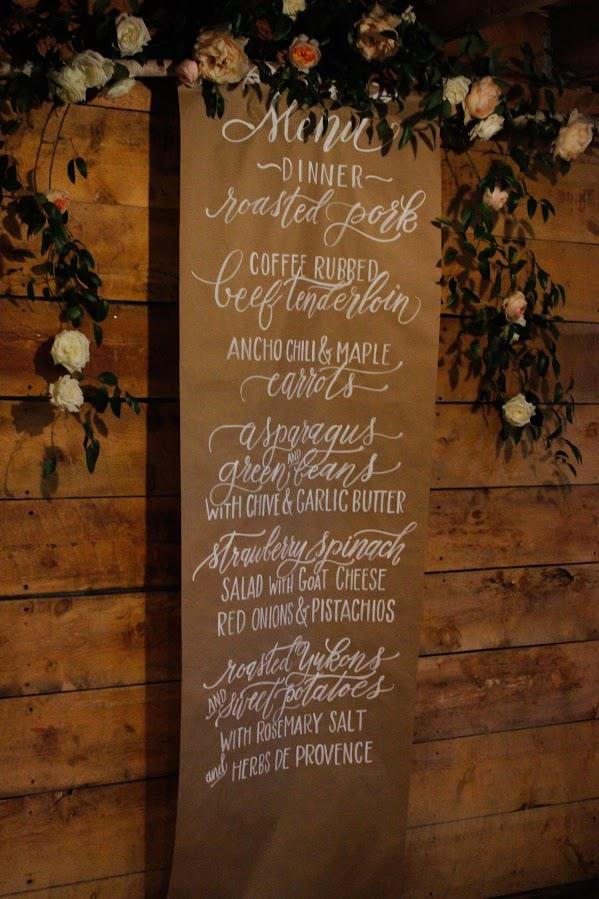 Menu
~DINNER~
roasted pork
COFFEE RUBBED
beef tenderloin
ANCHO CHILI & MAPLE
carrots
asparagus
AND
green beans
WITH CHIVE & GARLIC BUTTER
strawberry spinach
SALAD WITH GOAT CHEESE
RED ONIONS & PISTACHIOS
roasted Yukons
AND sweet potatoes
WITH ROSEMARY SALT
and HERBS DE PROVENCE